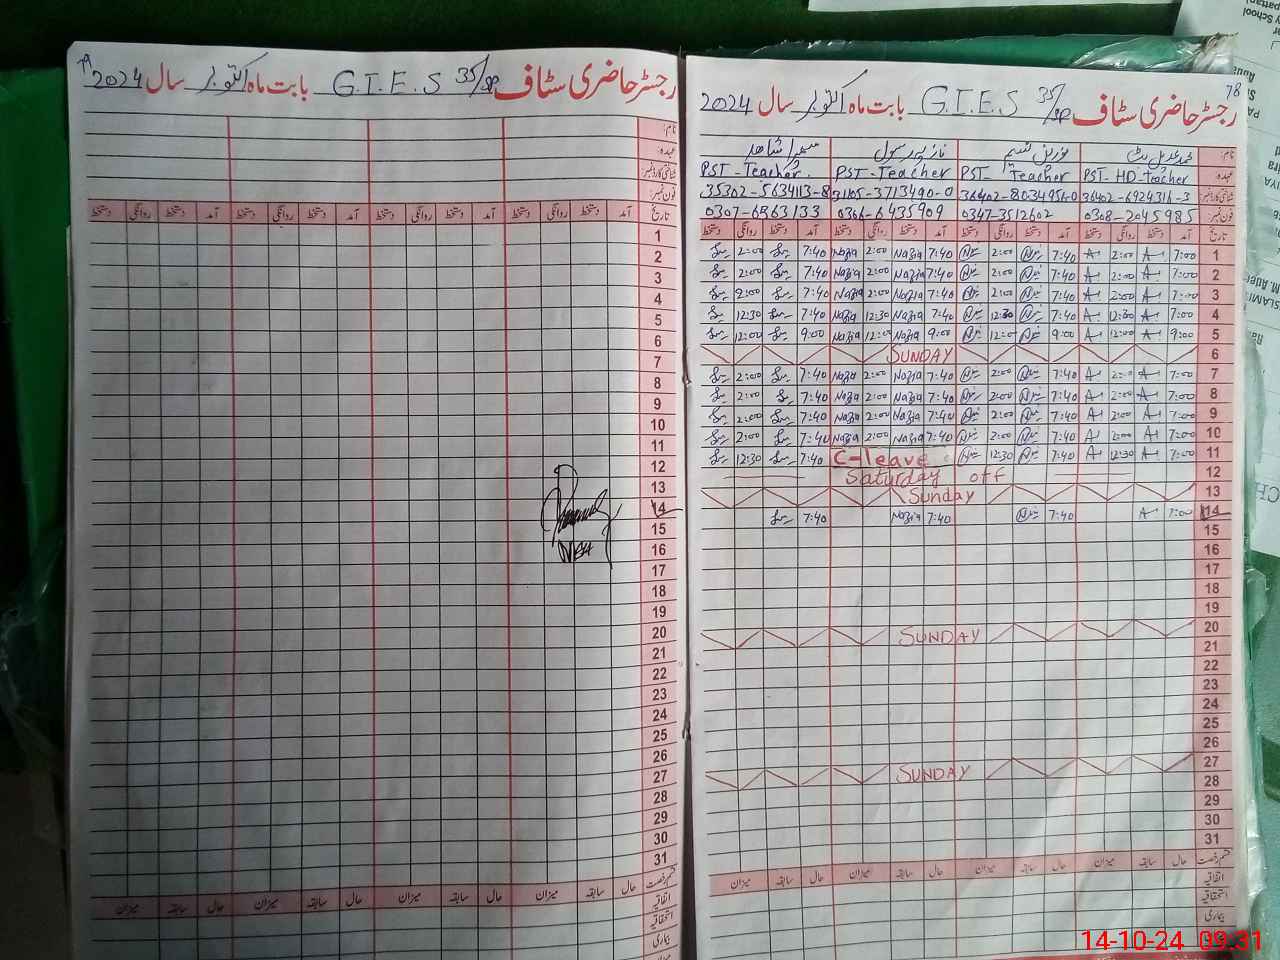 79
رجسٹر حاضری سٹاف G.I.E.S 35/SP بابت ماہ اکتوبر سال 2024
نام:
عہدہ:
شناختی کارڈ نمبر:
فون نمبر:
تاریخ آمد دستخط روانگی دستخط آمد دستخط روانگی دستخط آمد دستخط روانگی دستخط آمد دستخط روانگی دستخط
1
2
3
4
5
6
7
8
9
10
11
12
13
14
15
16
17
18
19
20
21
22
23
24
25
26
27
28
29
30
31
قسم رخصت حال سابقہ میزان حال سابقہ میزان حال سابقہ میزان حال سابقہ میزان
اتفاقیہ
استحقاقیہ
بیماری
78
رجسٹر حاضری سٹاف G.I.E.S 35/SP بابت ماہ اکتوبر سال 2024
نام: نورین نسیم نازیہ رسول سمیرا شاھد
عہدہ: PST HD-teacher PST- Teacher PST-Teacher PST-Teacher.
شناختی کارڈ نمبر: 36402-6924316-3 36402-8034951-0 31105-3713490-0 35302-5634113-8
فون نمبر: 0308-2045985 0347-3512602 0306-6435909 0307-6963133
تاریخ آمد دستخط روانگی دستخط آمد دستخط روانگی دستخط آمد دستخط روانگی دستخط آمد دستخط روانگی دستخط
1 7:00 2:00 7:40 2:00 7:40 Nazia 2:00 Nazia 7:40 2:00
2 7:00 2:00 7:40 2:00 7:40 Nazia 2:00 Nazia 7:40 2:00
3 7:00 2:00 7:40 2:00 7:40 Nazia 2:00 Nazia 7:40 2:00
4 7:00 12:30 7:40 12:30 7:40 Nazia 12:30 Nazia 7:40 12:30
5 9:00 12:00 9:00 12:00 9:00 Nazia 12:00 Nazia 9:00 12:00
6 SUNDAY
7 7:00 2:00 7:40 2:00 7:40 Nazia 2:00 Nazia 7:40 2:00
8 7:00 2:00 7:40 2:00 7:40 Nazia 2:00 Nazia 7:40 2:00
9 7:00 2:00 7:40 2:00 7:40 Nazia 2:00 Nazia 7:40 2:00
10 7:00 2:00 7:40 2:00 7:40 Nazia 2:00 Nazia 7:40 2:00
11 7:00 12:30 7:40 12:30 C-leave 7:40 12:30
12 Saturday off
13 Sunday
14 7:00 7:40 7:40 Nazia 7:40
15
16
17
18
19
20 SUNDAY
21
22
23
24
25
26
27 SUNDAY
28
29
30
31
قسم رخصت حال سابقہ میزان حال سابقہ میزان حال سابقہ میزان حال سابقہ میزان
اتفاقیہ
استحقاقیہ
بیماری
14-10-24 09:31